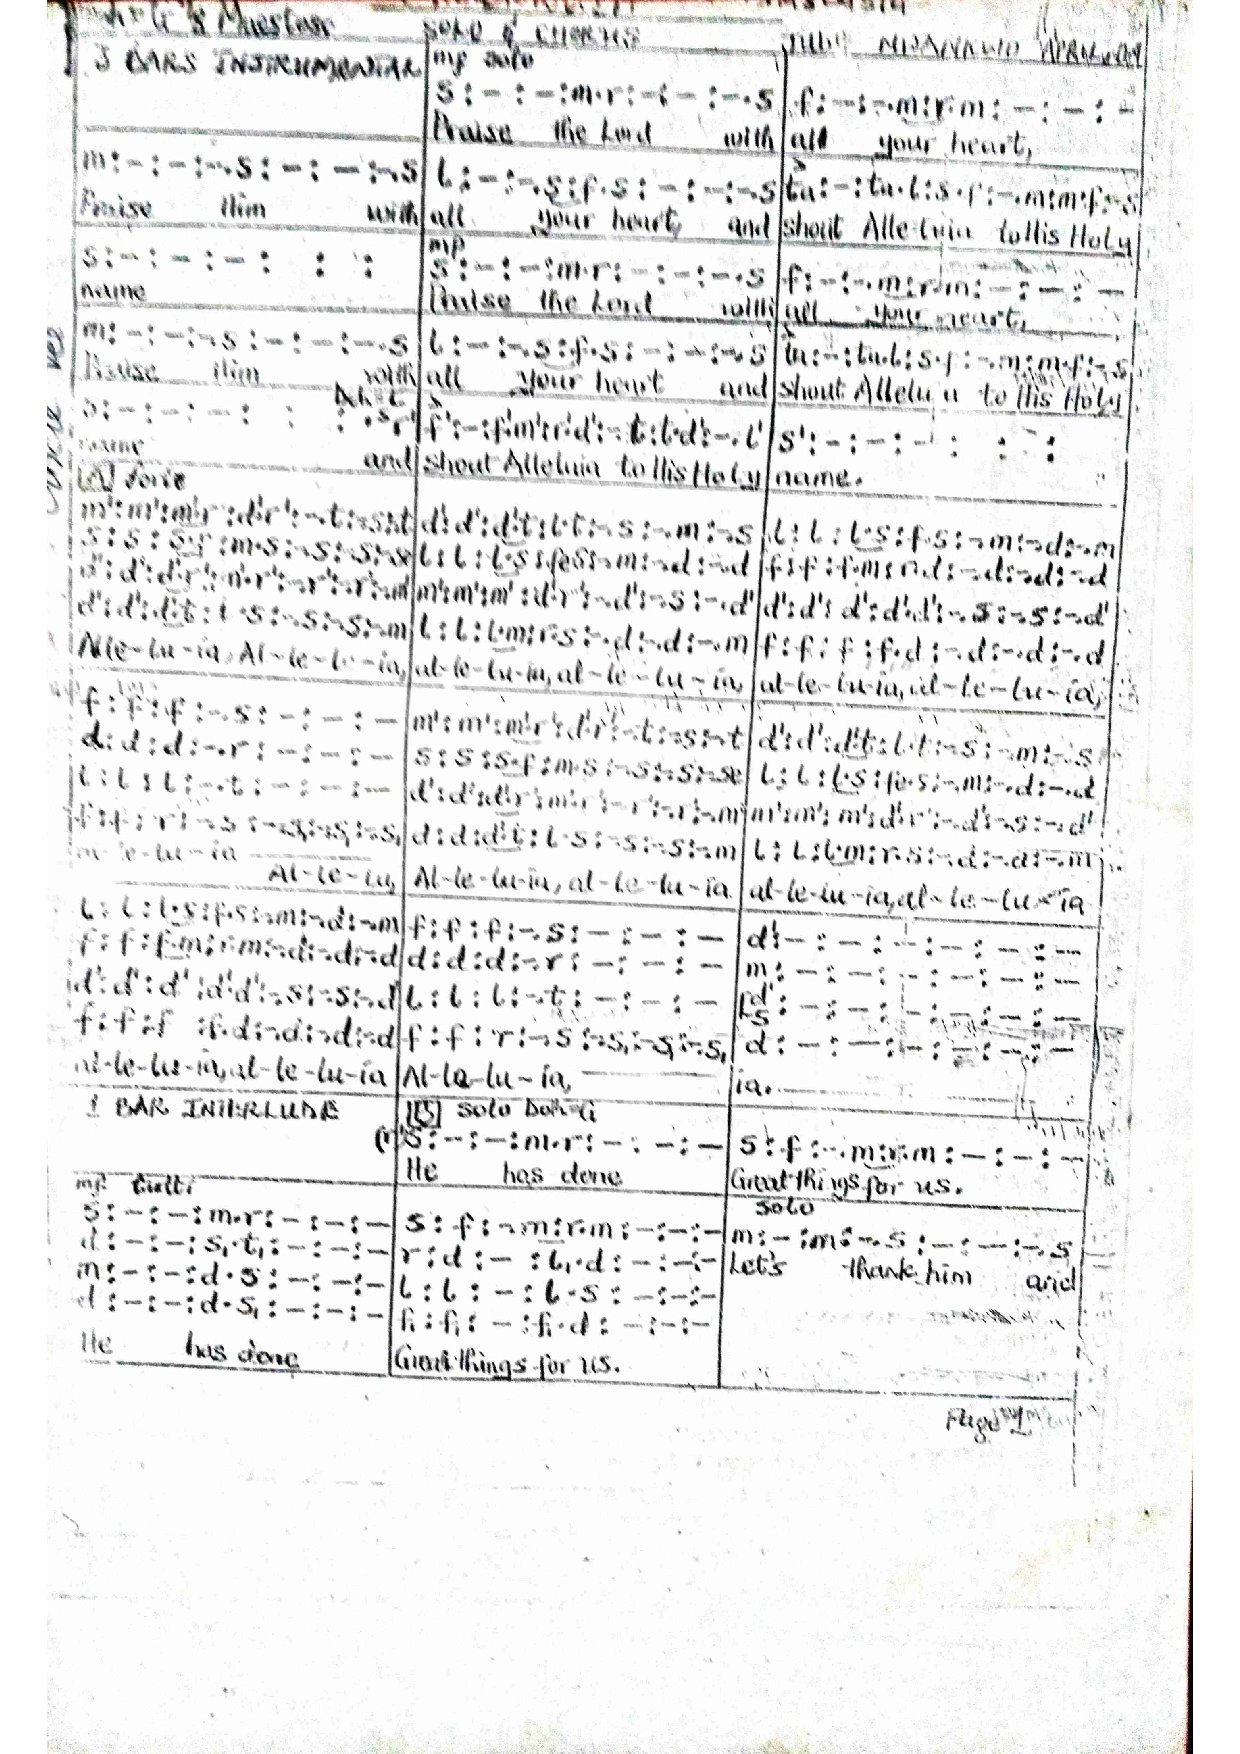 Maestoso SOLO & CHORUS
3 BARS INSTRUMENTAL mp solo
s : – : – : m.r : – : – : –.s f : – : –.m : r.m : – : – : –
Praise the Lord with all your heart,
m : – : – : –.s : – : – : –.s l : – : –.s : f.s : – : – : –.s ta : – : ta.l : s.f : –.m : m.f : –.s
Praise Him with all your heart, and shout Alleluia to His Holy
mp
s : – : – : – : : : s : – : – : m.r : – : – : –.s f : – : –.m : r.m : – : – : –
name Praise the Lord with all your heart,
m : – : – : –.s : – : – : –.s l : – : –.s : f.s : – : – : –.s ta : – : ta.l : s.f : –.m : m.f : –.s
Praise Him with all your heart and shout Alleluia to His Holy
s : – : – : – : : : f' : – : f'.m' : r'.d' : –.t : t.d' : –.l' s' : – : – : – : : :
name and shout Alleluia to His Holy name.
[A] forte
m' : m' : m'.r' : d'.r' : –.t : –.s : –.t d' : d' : d'.t : l.t : –.s : –.m : –.s l : l : l.s : f.s : –.m : –.d : –.m
s : s : s.f : m.s : –.s : –.s : –.se l : l : l.s : fe.s : –.m : –.d : –.d f : f : f.m : r.d : –.d : –.d : –.d
d' : d' : d'.r' : m'.r' : –.r' : –.r' : –.m' m' : m' : m' : d'.r' : –.d' : –.s : –.d' d' : d' : d' : d'.d' : –.s : –.s : –.d'
d' : d' : d'.t : l.s : –.s : –.s : –.m l : l : l.m : r.s : –.d : –.d : –.m f : f : f : f.d : –.d : –.d : –.d
Alle-lu-ia, Al-le-lu-ia, al-le-lu-ia, al-le-lu-ia, al-le-lu-ia, al-le-lu-ia,
f : f : f : –.s : – : – : – m' : m' : m'.r' : d'.r' : –.t : –.s : –.t d' : d' : d'.t : l.t : –.s : –.m : –.s
d : d : d : –.r : – : – : – s : s : s.f : m.s : –.s : –.s : –.se l : l : l.s : fe.s : –.m : –.d : –.d
l : l : l : –.t : – : – : – d' : d' : d'.r' : m'.r' : –.r' : –.r' : –.m' m' : m' : m' : d'.r' : –.d' : –.s : –.d'
f : f : r : –.s : –.s, : –.s, : –.s, d : d : d'.t : l.s : –.s : –.s : –.m l : l : l.m : r.s : –.d : –.d : –.m
al-le-lu-ia
Al-le-lu, Al-le-lu-ia, al-le-lu-ia al-le-lu-ia, al-le-lu-ia
l : l : l.s : f.s : –.m : –.d : –.m f : f : f : –.s : – : – : – d' : – : – : – : – : – : –
f : f : f.m : r.m : –.d : –.d : –.d d : d : d : –.r : – : – : – m : – : – : – : – : – : –
d' : d' : d' : d'.d' : –.s : –.s : –.d' l : l : l : –.t : – : – : – [d' s : – : – : – : – : – : –
f : f : f : f.d : –.d : –.d : –.d f : f : r : –.s : –.s, : –.s, : –.s, d : – : – : – : – : – : –
al-le-lu-ia, al-le-lu-ia Al-le-lu-ia, ia.
1 BAR INTERLUDE [B] solo Doh-G
s : – : – : m.r : – : – : – s : f : –.m : r.m : – : – : –
He has done Great things for us.
mp tutti solo
s : – : – : m.r : – : – : – s : f : –.m : r.m : – : – : – m : – : m : –.s : – : – : –.s
d : – : – : s,.t, : – : – : – r : d : – : l,.d : – : – : – Let's thank him and
m : – : – : d.s : – : – : – l : l : – : l.s : – : – : –
d : – : – : d.s, : – : – : – f, : f, : – : f,.d : – : – : –
He has done Great things for us.
Page 1